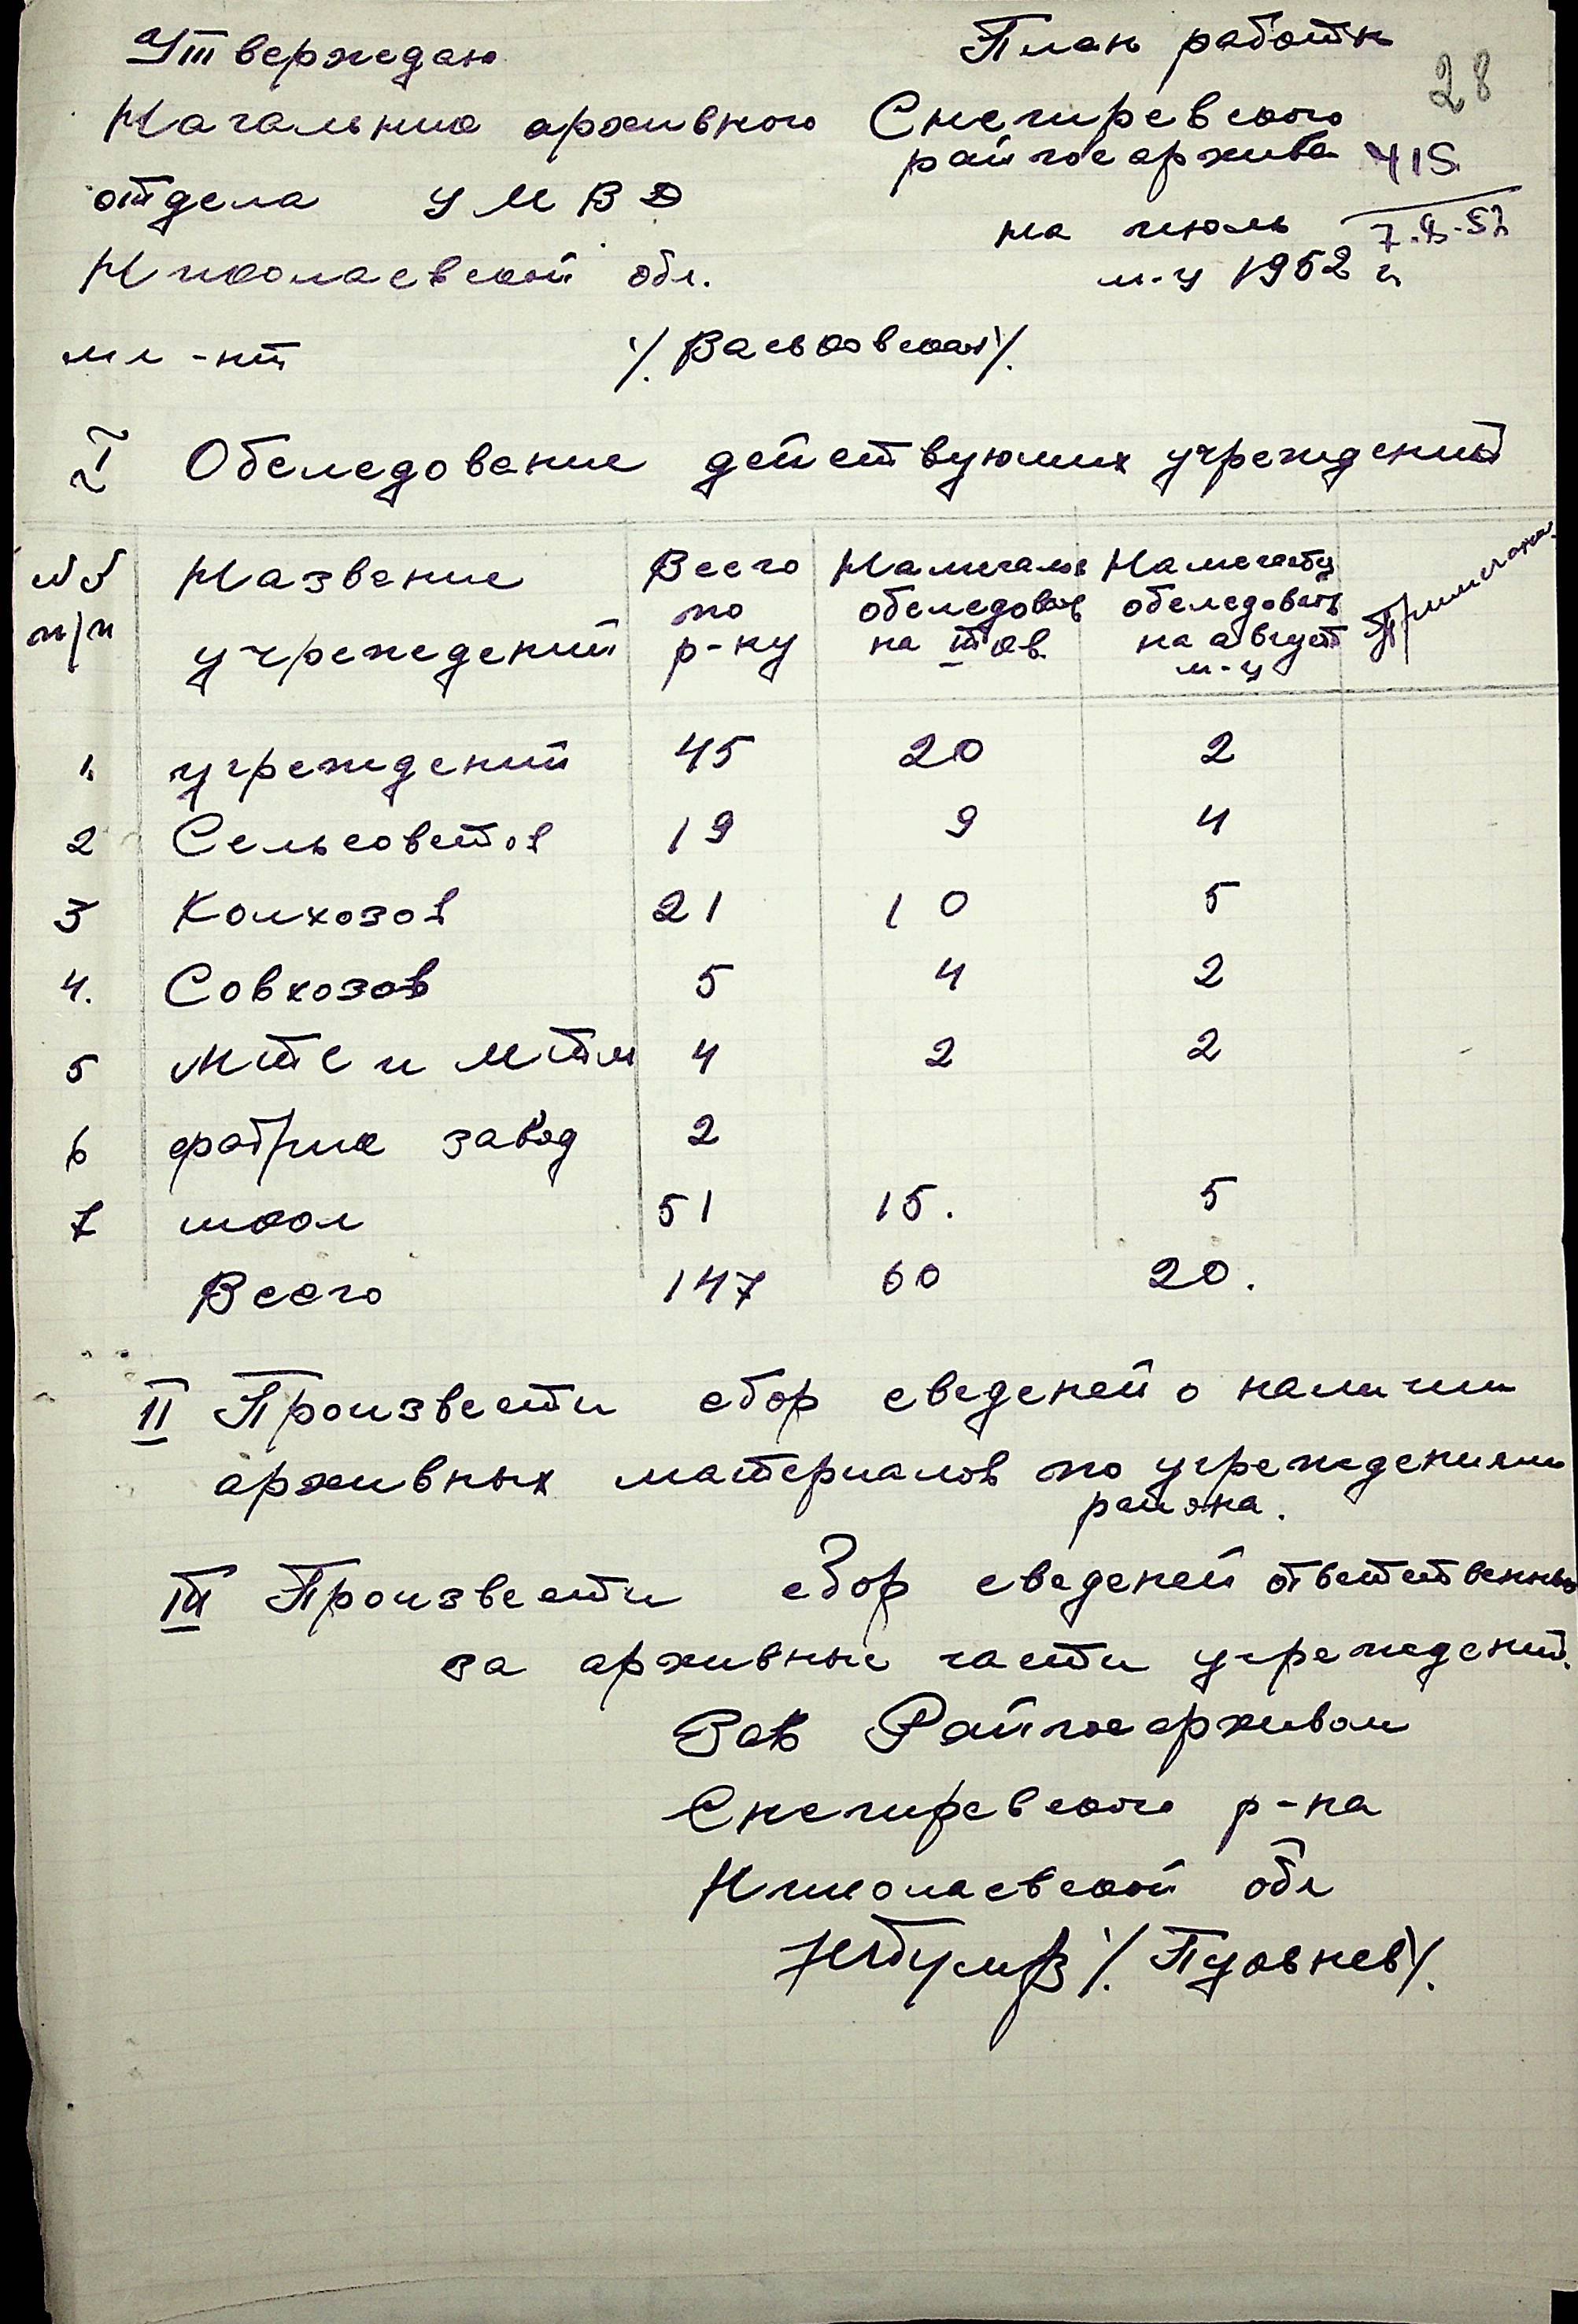 Утверждаю
Начальник архивного
отдела УМВД
Николаевской обл.
мл-нт /. Васьковская /.
План работы
28
Снегиревского
райгосархива
415
7.8.52
на июль
м-ц 1952 г
I Обследование действующих учреждений
№№ п/п
Название учреждений
Всего по р-ку
Намечалось обследовать на III кв.
Намечается обследовать на август м-ц
Примечание
1. учреждений 45 20 2
2 Сельсоветов 19 9 4
3 Колхозов 21 10 5
4. Совхозов 5 4 2
5 МТС и МТМ 4 2 2
6 фабрик завод 2
7 школ 51 15. 5
Всего 147 60 20.
II Произвести сбор сведеней о наличии
архивных материалов по учреждениям
района.
III Произвести сбор сведеней ответственных
за архивные части учреждений.
Зав Райгосархивом
Снегиревского р-на
Николаевской обл
/. Пуовнев /.